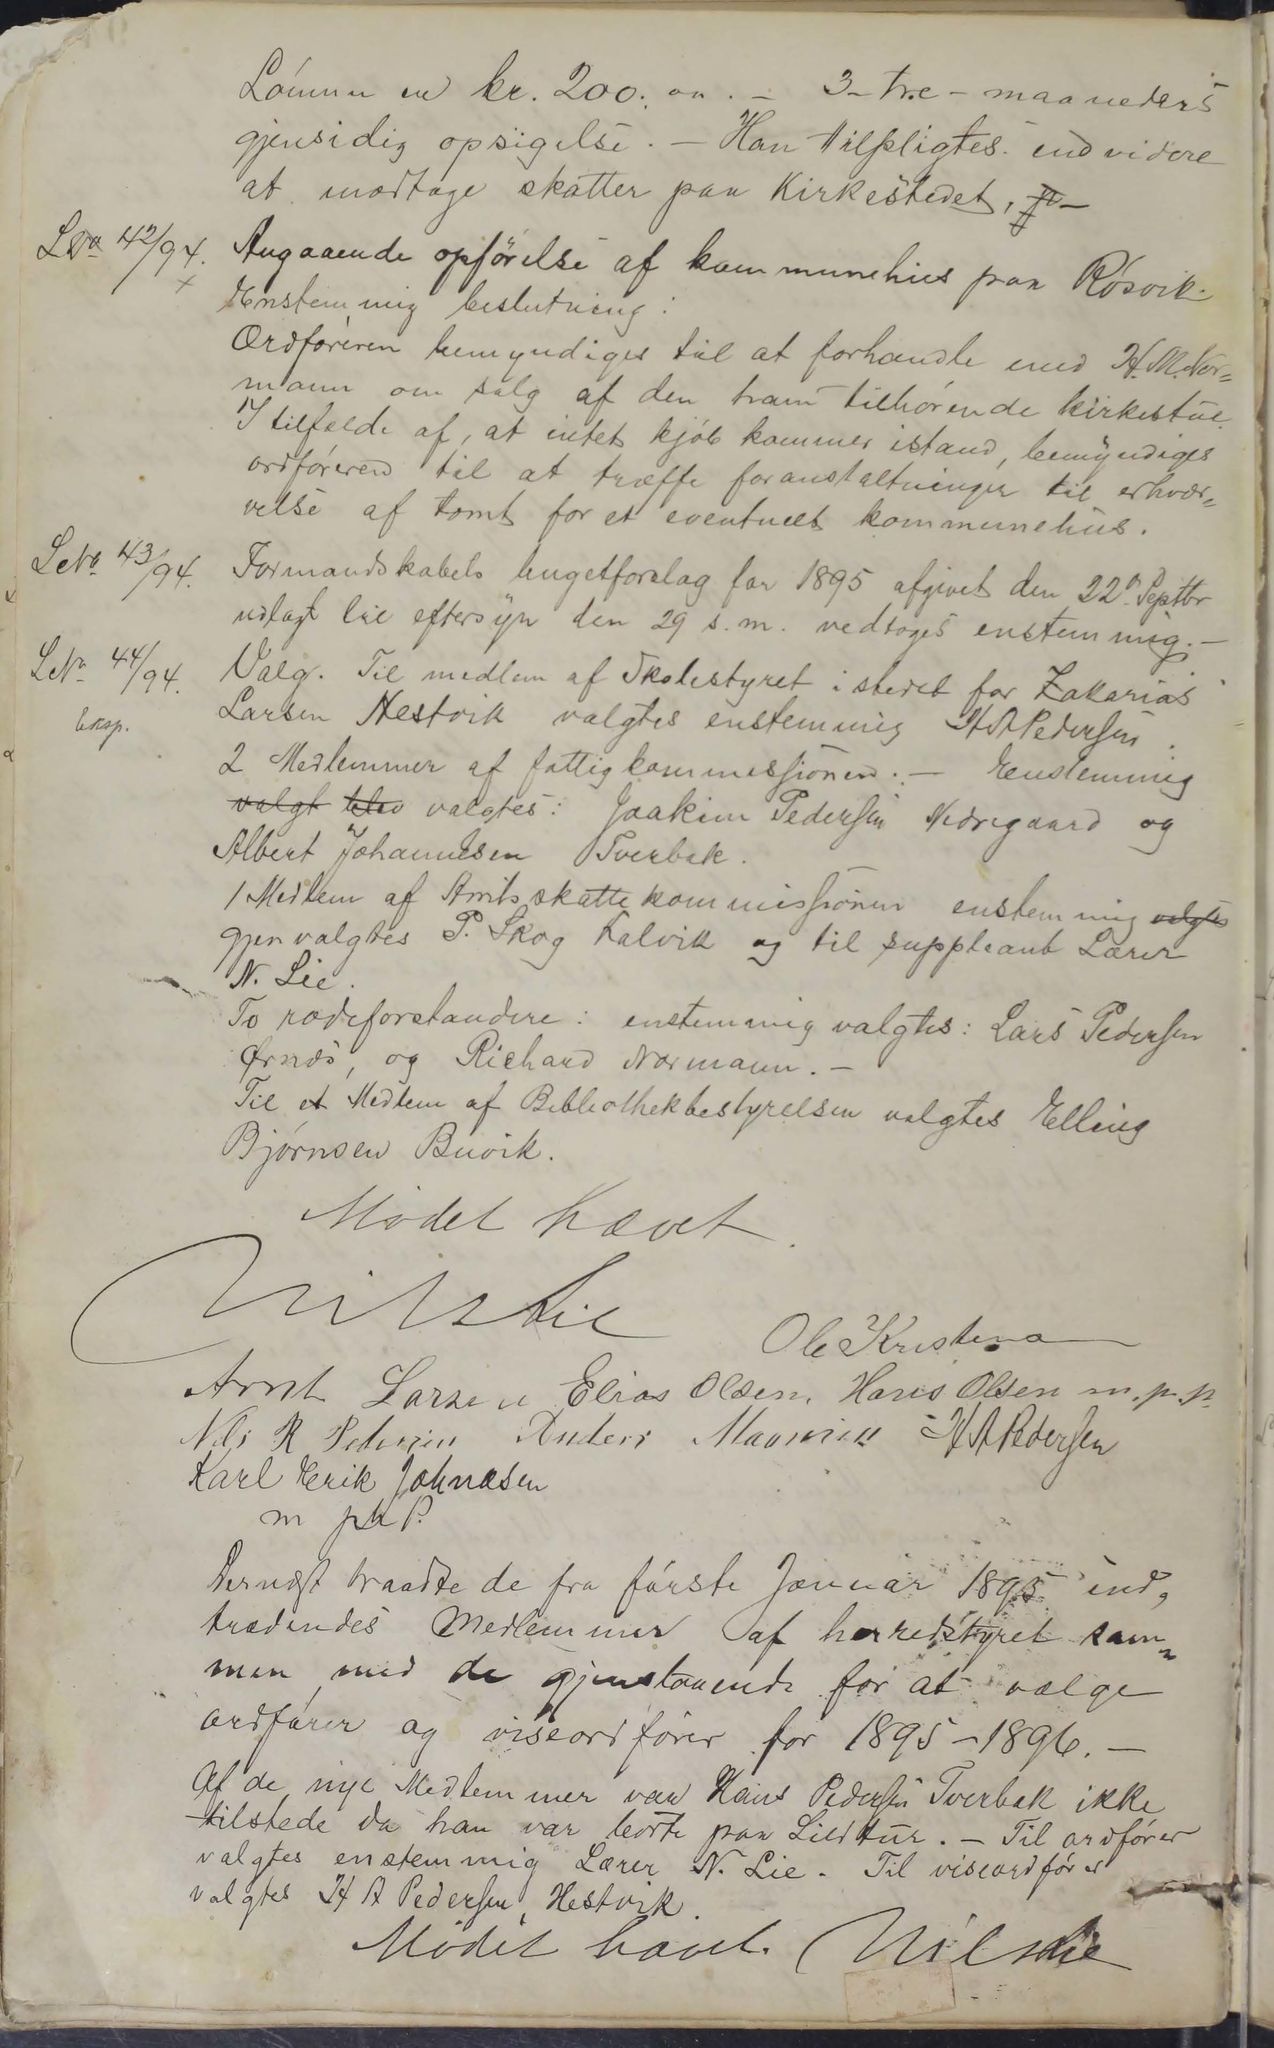 Lønnen er kr. 200.00. – 3 – tre – maaneders
gjensidig opsigelse. – Han tilpligtes endvidere
at modtage skatter paa Kirkestedet,
LNo 42/94. Angaaende opførelse af kommunehus paa Røsvik.
Enstemmig beslutning:
Ordføreren bemyndiges til at forhandle med H. M. Nor=
mann om salg af den ham tilhørende kirkestue.
I tilfælde af, at intet kjøb kommer istand, bemyndiges
ordføreren til at træffe foranstaltninger til erhver=
velse af tomt for et eventuelt kommunehus.
LNo 43/94. Formandskabets bugetforslag for 1895 afgivet den 22. Septbr
udlagt til eftersyn den 29 s. m. vedtoges enstemmig. –
LNo 44/94. Valg. Til medlem af Skolestyret i stedet for Zakarias
Eksp. Larsen Hestvik valgtes enstemmig H A Pedersen.
2 Medlemmer af fattigkommissionen. – Enstemmig
valgt blev valgtes: Joakim Pedersen Nedregaard og
Albert Johannesen Tverbak.
1 Medlem af Amtsskattekommissionen enstemmig valgtes
gjenvalgtes P. Skog Kalvik og til suppleant Lærer
N. Lie.
To rodeforstandere: enstemmig valgtes: Lars Pedersen
Ørnes, og Richard Normann. –
Til et Medlem af Bibliothekbestyrelsen valgtes Elling
Bjørnsen Buvik.
Mødet hævet.
Nils Lie
Ole Kristens
Arnt Larsen Elias Olsen. Hans Olsen m. p. p.
Nils R Pedersen Anders H A Pedersen
Karl Erik Johnæsen
m p P.
Dernæst traadte de fra første Januar 1895 ind=
trædendes Medlemmer af herredstyret sam=
men med de gjenstaaende for at vælge
ordfører og viseordfører for 1895 – 1896. –
Af de nye Medlemmer var Hans Pedersen Tverbak ikke
tilstede da han var borte paa Sildtur. – Til ordfører
valgtes enstemmig Lærer N. Lie. Til viseordfører
valgtes H A Pedersen, Hestvik.
Mødet hævet. Nils Lie